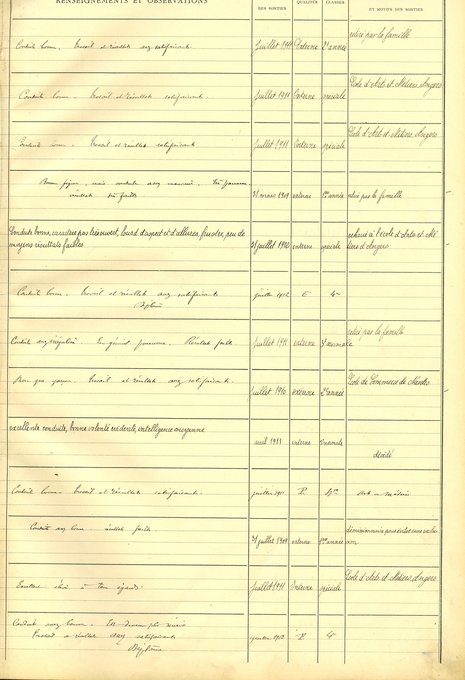 RENSEIGNEMENTS ET OBSERVATIONS
DES SORTIES
QUALITÉS
CLASSES
ET MOTIFS DES SORTIES
Conduite bonne. Travail et résultats assez satisfaisants.
juillet 1911 interne 2e année
retiré par la famille
Conduite bonne. Travail et résultats satisfaisants.
juillet 1911 interne spéciale
École d'Arts et Métiers, Angers
Conduite bonne. Travail et résultats satisfaisants
juillet 1911 interne spéciale
École d'Arts et Métiers, Angers
Bonne figure, mais conduite assez mauvaise. Très paresseux
résultats très faibles
31 mars 1909 externe 1re année retiré par la famille
Conduite bonne, caractère pas très ouvert, lourd d'aspect et d'allures, frustre, peu de
moyens résultats faibles
31 juillet 1910 externe spéciale
à l'école d'Arts et Mé
tiers d'Angers
Conduite bonne. Travail et résultats assez satisfaisants
juillet 1912 E 4e
Conduite assez régulière. En général paresseux. Résultats faibles.
juillet 1911 externe
retiré par la famille
Travail et résultats assez satisfaisants.
juillet 1910 externe 2e année
École de Commerce de Nantes
excellente conduite, bonne volonté évidente, intelligence moyenne
avril 1911 interne
décédé
Conduite bonne. Travail et résultats satisfaisants.
juillet 1911
Arts et Métiers
Conduite assez bonne. résultats faibles.
31 juillet 1909 externe 1re année
Excellent élève à tous égards
juillet 1911 interne spéciale
École d'Arts et Métiers, Angers
Conduite assez bonne. Est devenu plus sérieux
Travail et résultats assez satisfaisants
1912 4e